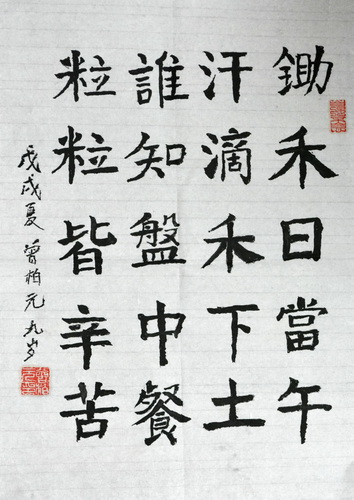 鋤禾日當午
汗滴禾下土
誰知盤中餐
粒粒皆辛苦
戊戌夏 曾柏元 九岁